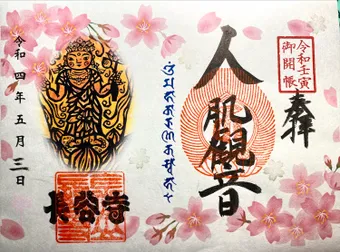 奉拝
令和壬寅
御開帳
人肌観音
令和四年五月三日
長谷寺